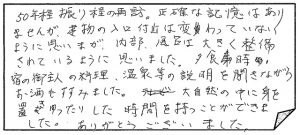 50年程振り程の再訪。正確な記憶はあり
ませんが、建物の入口付近は変わっていない
ように思いますが、内部、風呂は大きく整備
されているように思いました。夕食時、
宿の御主人の料理、温泉等の説明を聞きながら
お酒もすすみました。大自然の中に身を
置きゆったりした時間を持つことができま
した。ありがとうございました。